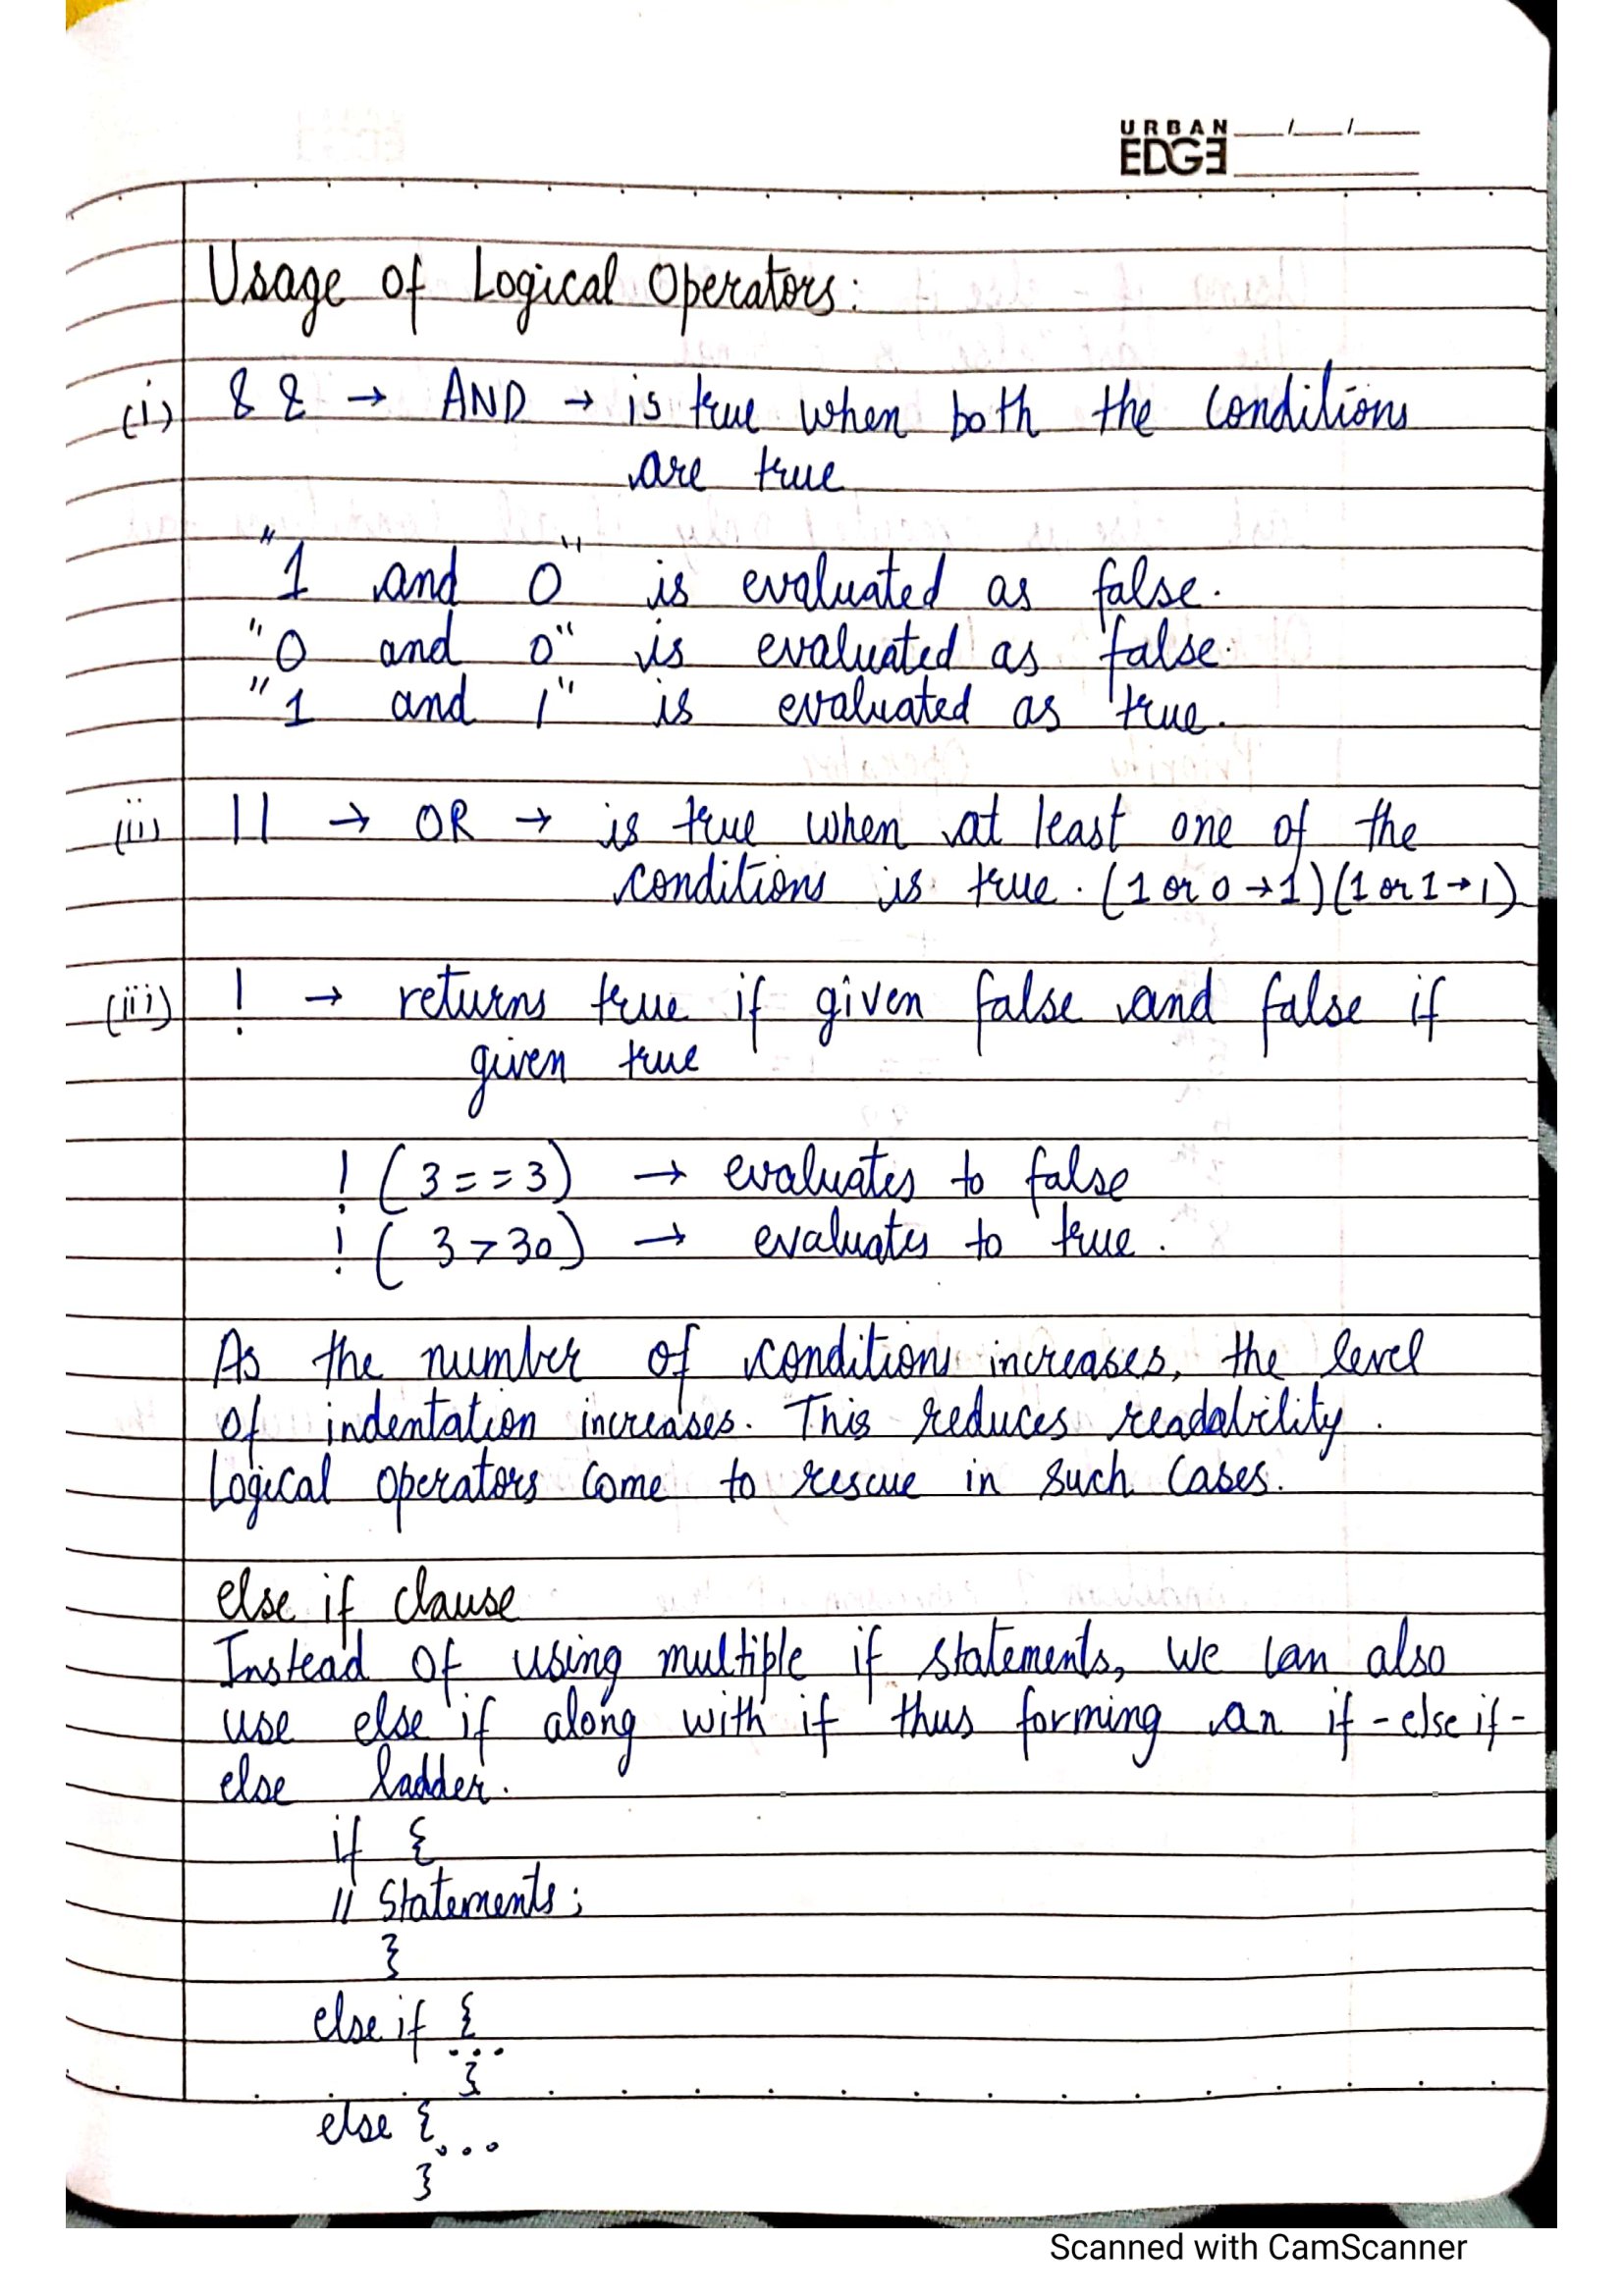 URBAN
EDGE
Usage of Logical Operators:
(i) && → AND → is true when both the conditions
are true
"1 and 0" is evaluated as false.
"0 and 0" is evaluated as false.
"1 and 1" is evaluated as true.
(ii) || → OR → is true when at least one of the
conditions is true. (1 or 0 → 1) (1 or 1 → 1)
(iii) ! → returns true if given false and false if
given true
! (3 = = 3) → evaluates to false
! ( 3 > 30) → evaluates to true.
As the number of conditions increases, the level
of indentation increases. This reduces readability.
Logical operators come to rescue in such cases.
else if clause
Instead of using multiple if statements, we can also
use else if along with if thus forming an if - else if -
else ladder.
if {
// Statements;
}
else if {
...
}
else {
...
}
Scanned with CamScanner